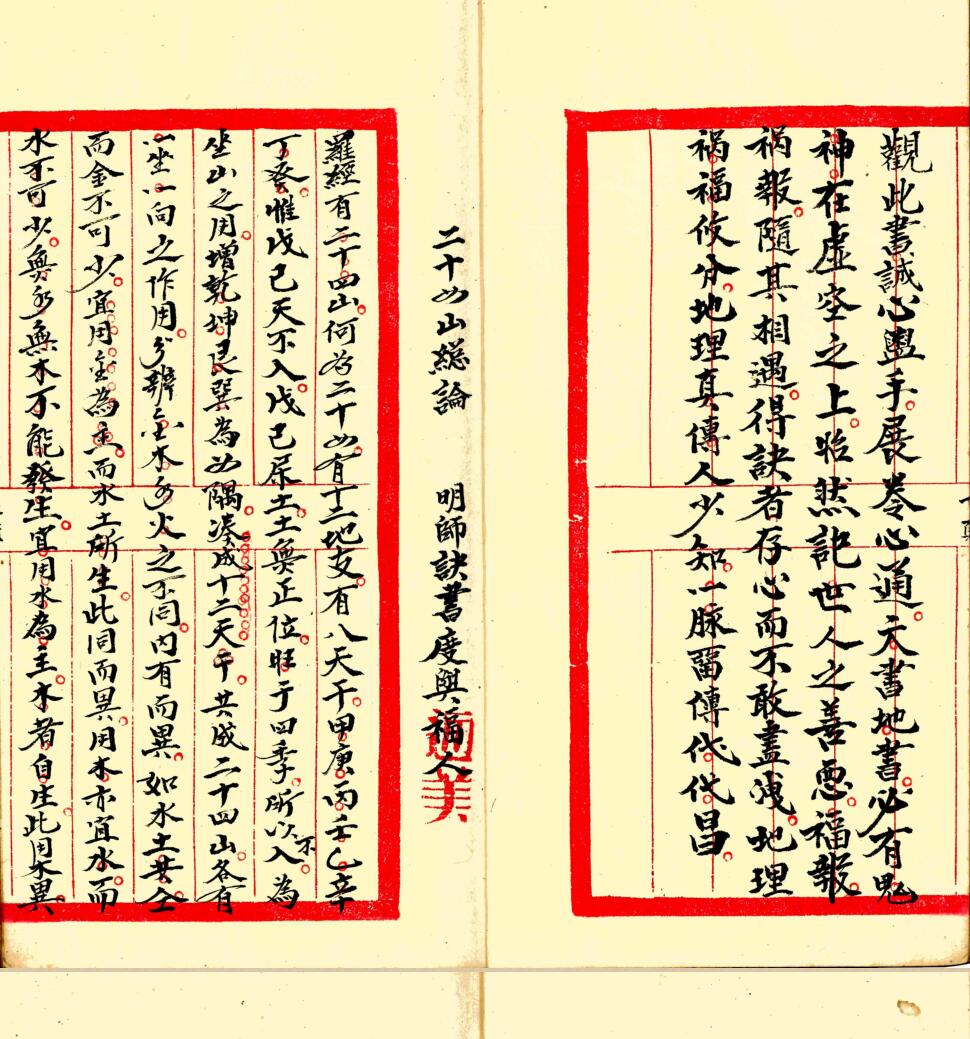 觀此書誠心盥手展卷心通天書地書必有鬼
神在虛空之上昭然記世人之善惡福報
禍報隨其相遇得訣者存心而不敢盡洩地理
禍福攸分地理真傳人少知一脉畱傳代代昌
二十四山總論 明師訣書度與福人
羅經有二十四山何為二十四有十二地支有八天干甲庚丙壬乙辛
丁癸惟戊己天不入戊己屬土土無正位旺于四季所以不入為
坐山之用增乾坤艮巽為四隅湊成十二天干共成二十四山各有
一坐一向之作用分辨金木水火之不同內有而異如水土共仝
而金不可少宜用金為主而水土所生此同而異用木亦宜水而
水不可少無水無木不能發生宜用水為主木者自生此用木異